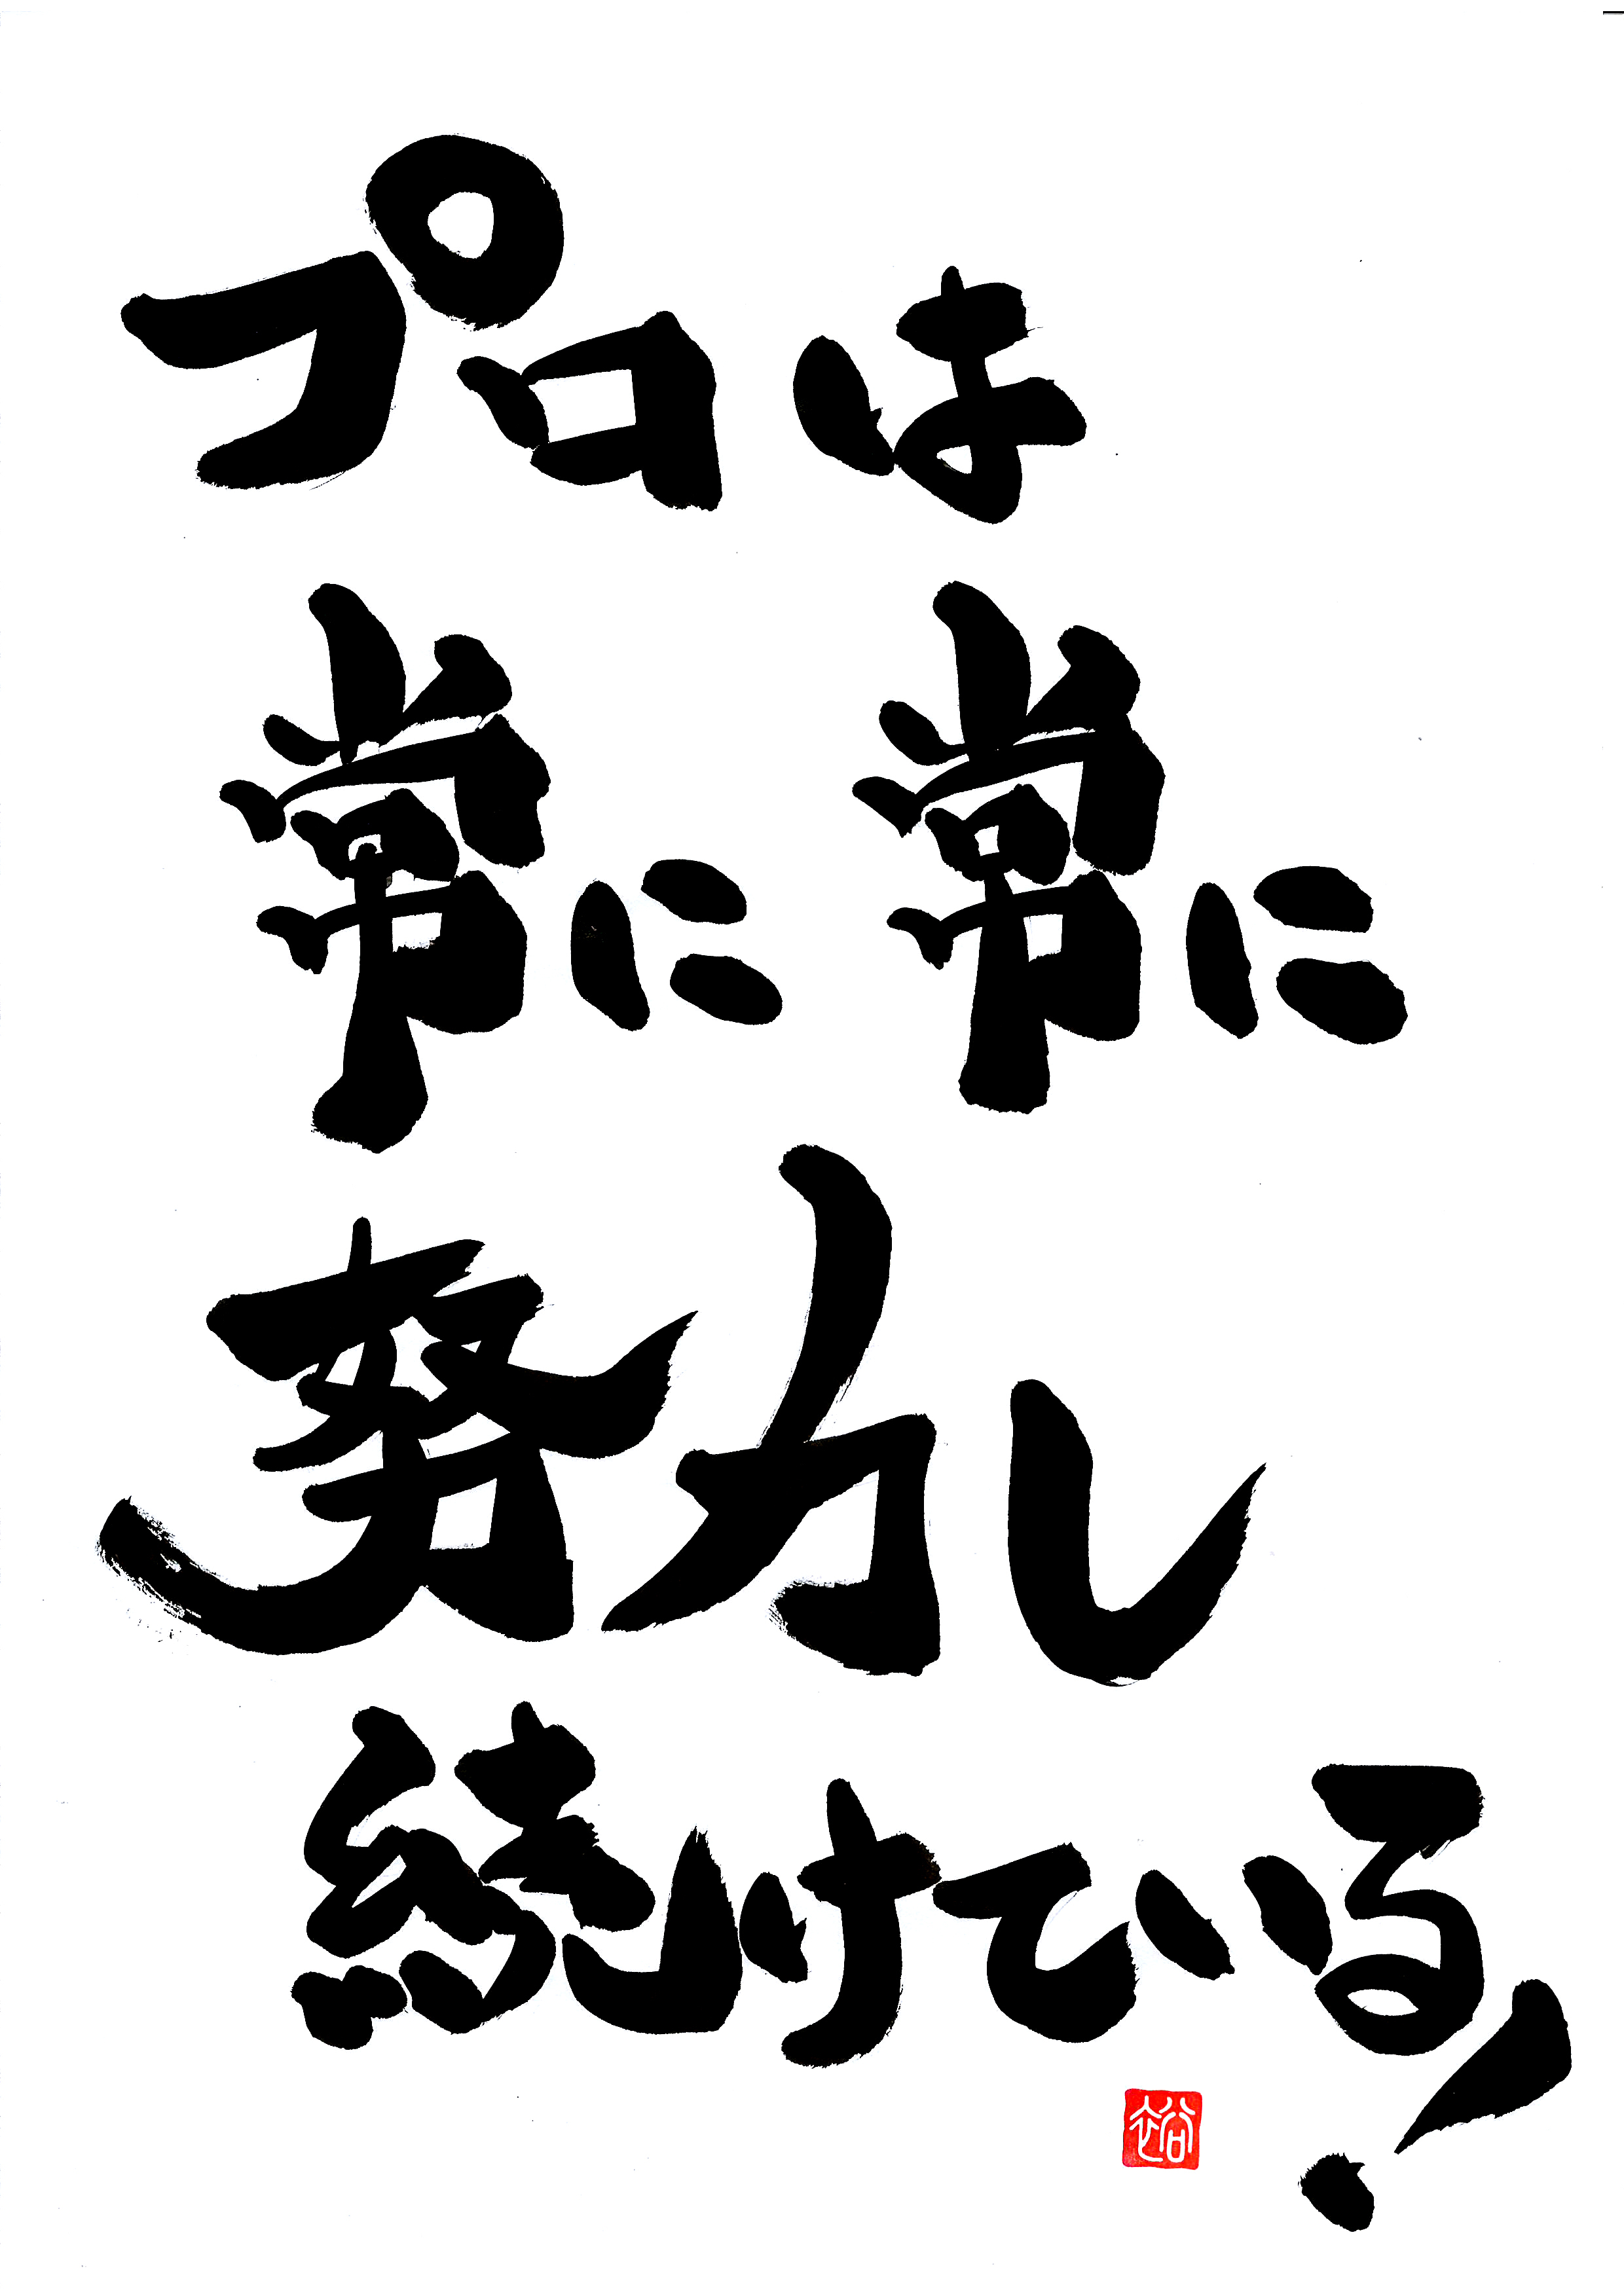 プロは
常に常に
努力し
続けている!
裕